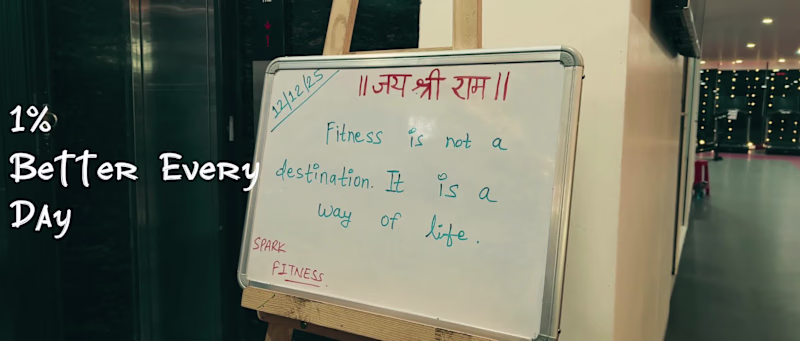 1%
Better Every
Day
12/12/25
॥ जय श्री राम ॥
Fitness is not a
destination. It is a
way of life.
SPARK
FITNESS.